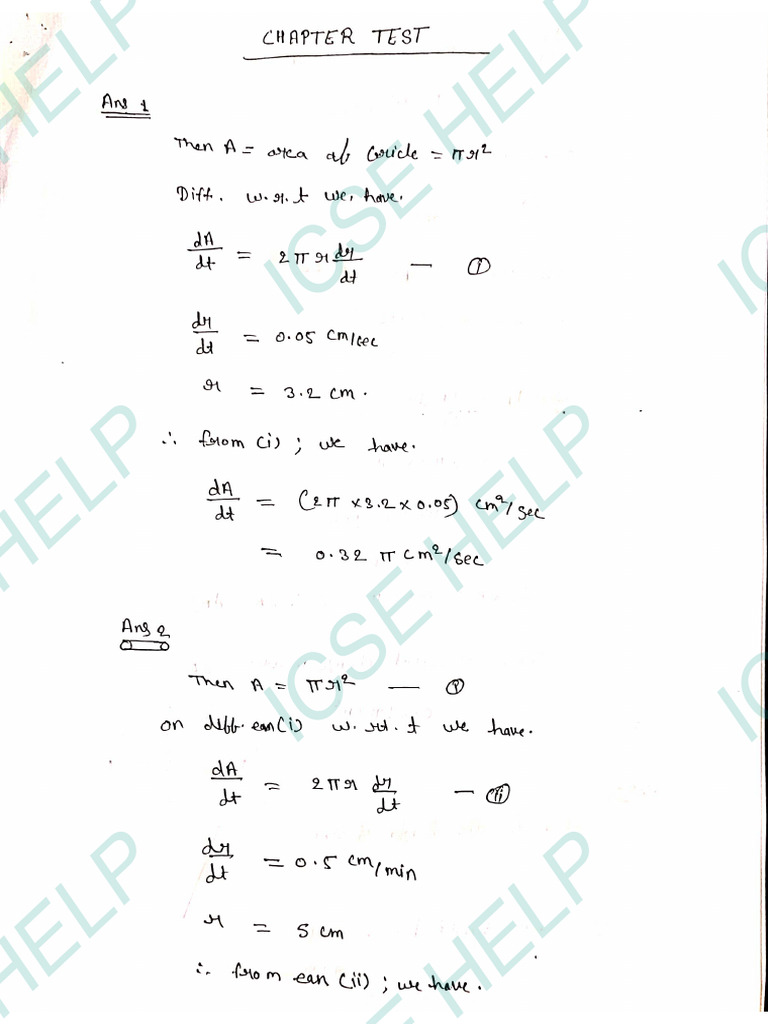 CHAPTER TEST
Ans 1
Then A = area of Circle = πr²
Diff. w.r.t we, have.
dA/dt = 2πr dr/dt — (i)
dr/dt = 0.05 cm/sec
r = 3.2 cm.
∴ from (i) ; we have.
dA/dt = (2π × 3.2 × 0.05) cm²/sec
= 0.32 π cm²/sec
Ans 2
Then A = πr² — (i)
on diff. eqn(i) w.r.t. t we have.
dA/dt = 2πr dr/dt — (ii)
dr/dt = 0.5 cm/min
r = 5 cm
∴ from eqn (ii) ; we have.
ICSE HELP
ICSE HELP
ICSE HELP
HELP
HELP
HELP
IC
IC